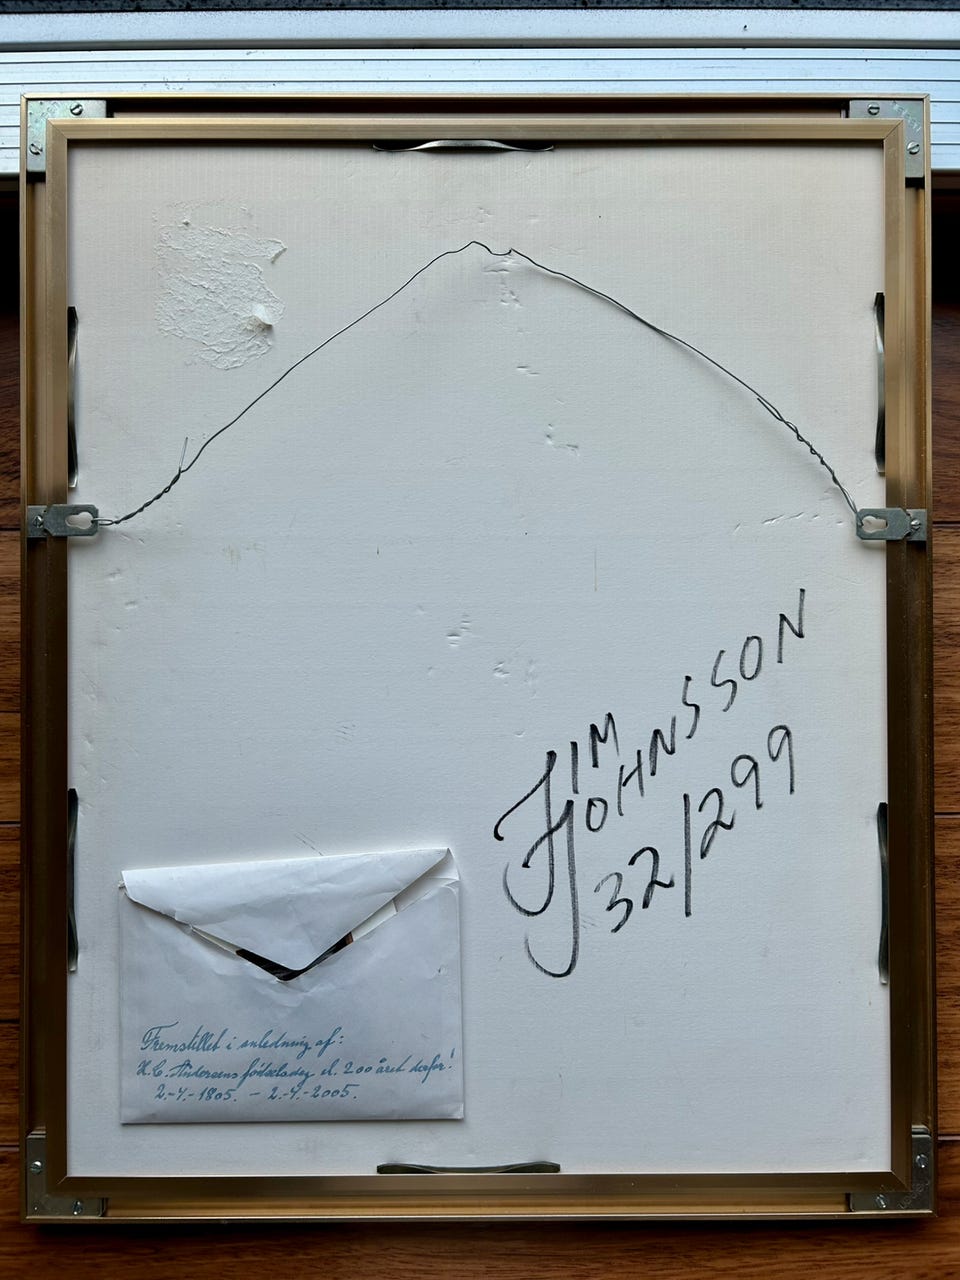 JIM
JOHNSSON
32/299
Fremstillet i anledning af:
H.C. Andersens fødselsdag el. 200 året derfor!
2.-4.-1805. - 2.-4.-2005.